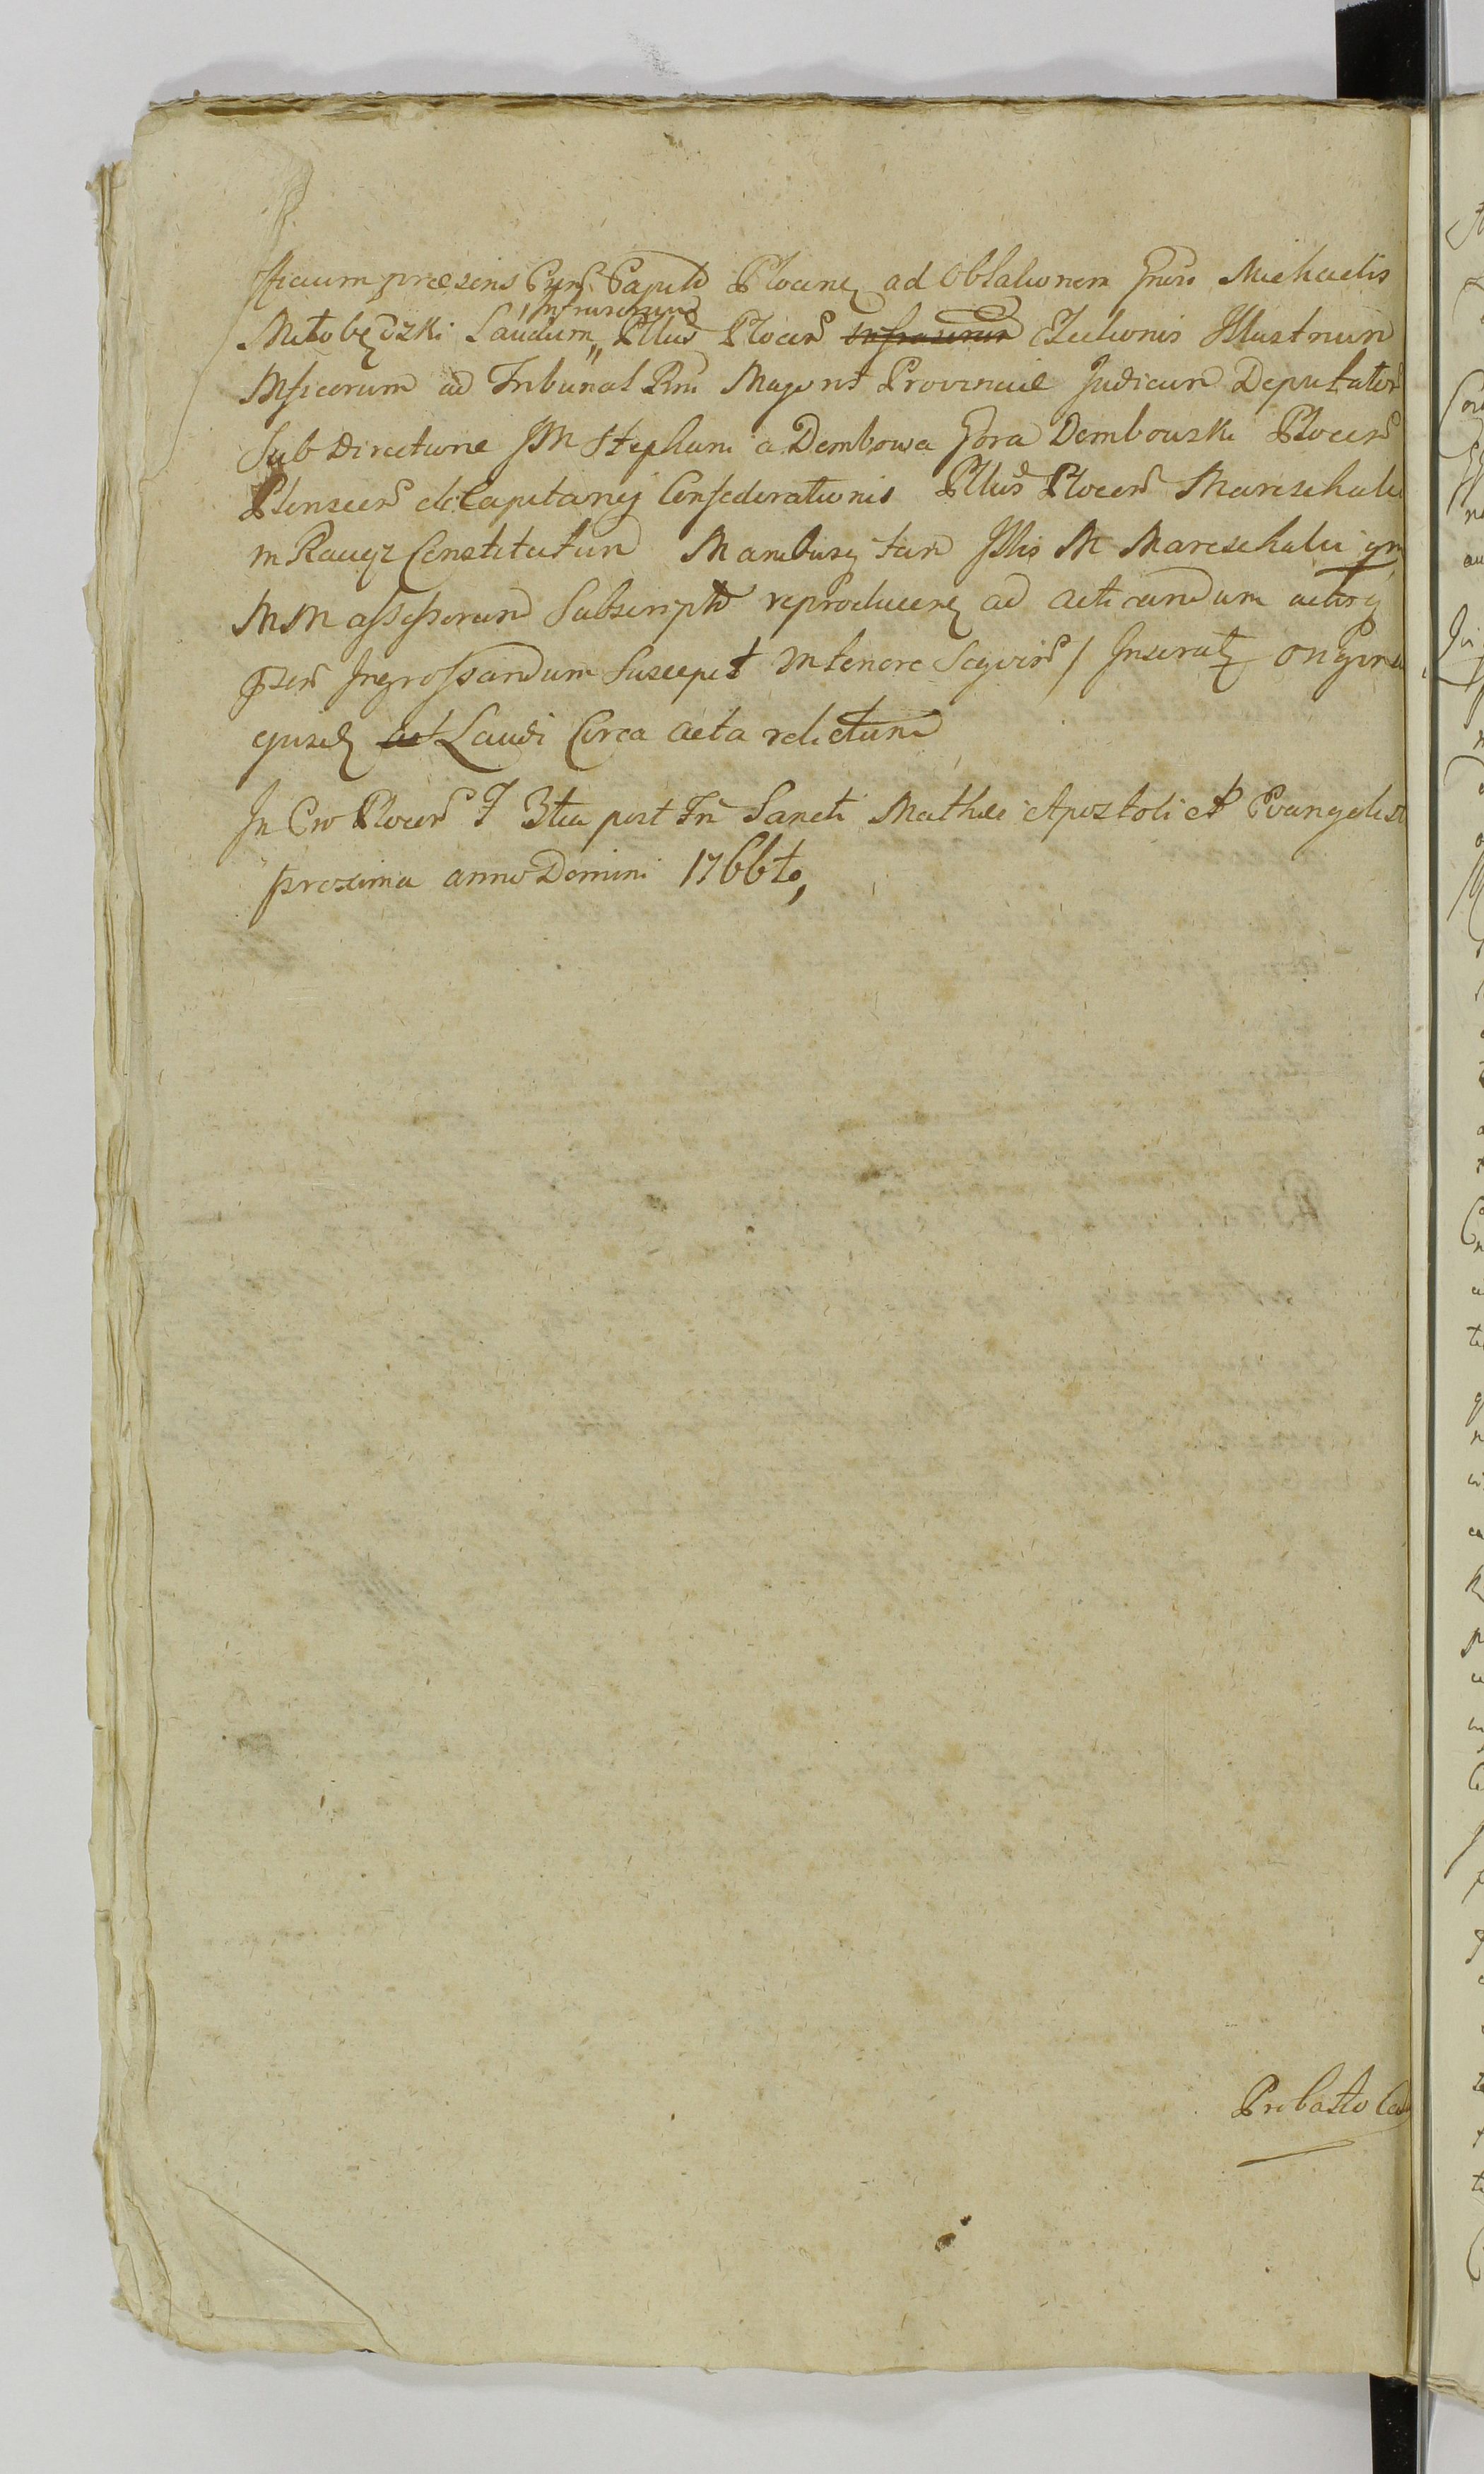 fficium præsens Cvni Capitł Plocenę ad Oblationem Gnrsi Michaelis
Infrascriptum
Miłobędzki Laudum Pltus Plocen infrascrum Electionis Illustrium
Mficorum ad Tribunal Rni Majoris Provinciæ Judicum Deputator
Sub Directione JM Stephani a Dembowa Gora Dembowski Plocen
Plonscen et Capitanej Confoederationis Pltus Plocen Mareschali
in Raciąz Constitutum Manibusq tam Jllis M Mareschali qm
MM assessorum Subscriptū reproducenę ad acticandum actisq
pzen Ingrossandum Suscepit in tenore Seqven / Inseratz Origina
ejusdę Laudi Circa acta relictum
In Cro Plocen F 3tia post Fm Sancti Mathæi Apostoli et Evangelist
proxima anno Domini 1766to,